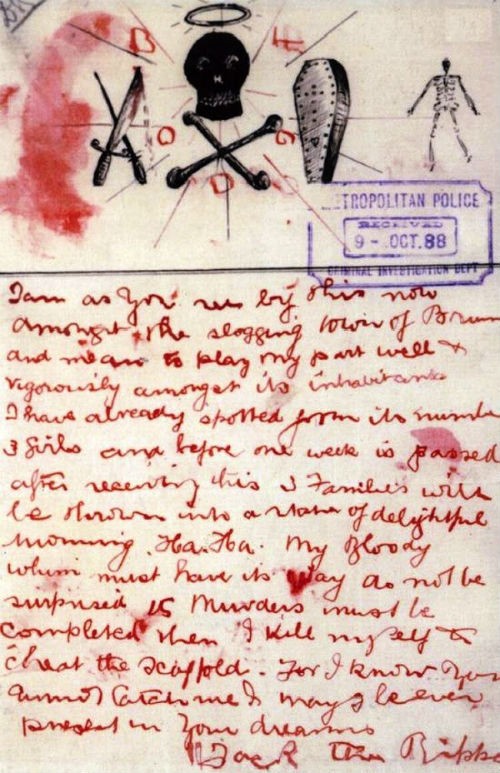 TROPOLITAN POLICE
RECEIVED
9 - OCT.88
CRIMINAL INVESTIGATION DEPT
I am as you see by this now
amongst the slogging town of Brum
and mean to play my part well &
vigorously amongst its inhabitants
I have already spotted from its numbe
3 Girls and before one week is passed
after receiving this 3 Families will
be thrown into a state of delightful
mourning. Ha. Ha. My Bloody
whim must have its way do not be
surprised 15 Murders must be
completed then I kill myself to
cheat the scaffold. For I know you
cannot catch me & may I be ever
present in your dreams
Jack the Ripp